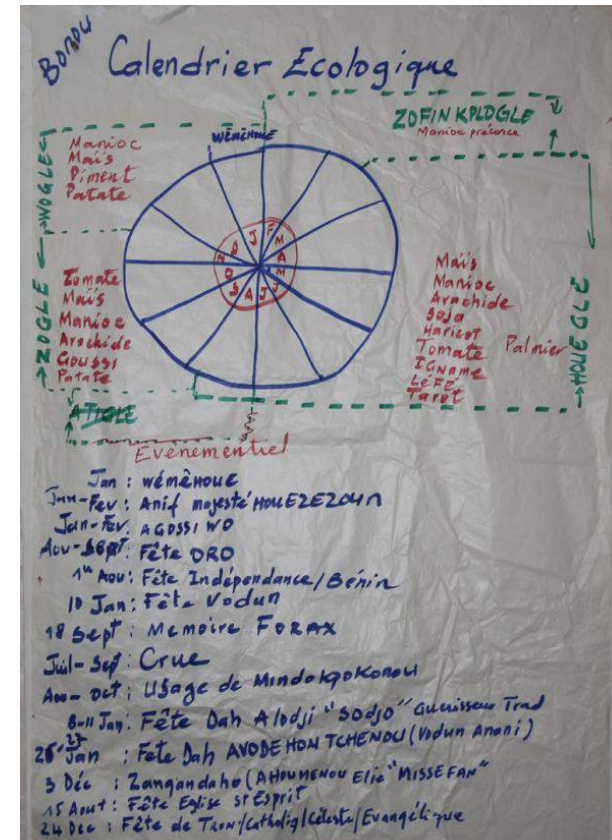 BONOU
Calendrier Ecologique
ZOFINKPLOGLE
Manioc précoce
WÉMÈHOUE
WOGLE
Manioc
Maïs
Piment
Patate
J F M A M J J A S O N D
ZOGLE
Tomate
Maïs
Manioc
Arachide
Goussi
Patate
Maïs
Manioc
Arachide
Soja
Haricot
Tomate
IGname
LéFE
Tarot
Palmier
HOUEGLE
ATIGLE
Evenementiel
Jan : WÉMÈHOUE
Jan-Fev : Anif majesté HOUEZEZOUN
Jan-Fev. AGOSSIWO
Aou-Sept: Fête ORO
1er Aou : Fête Indépendance/Bénin
10 Jan : Fête Vodun
18 Sept : Memoire FORAX
Juil-Sept : Crue
Aou-Oct : Usage de
8-11 Jan : Fête Dah Alodji "SODJO" Guerisseur Trad
26-27 Jan : Fete Dah AVODEHON TCHENOU (Vodun Anani)
3 Déc : Zangandaho (AHOUMENOU Elie "MISSEFAN"
15 Aout : Fête Eglise St Esprit
24 Dec : Fête de Tron/Catholiq/Céleste/Evangélique